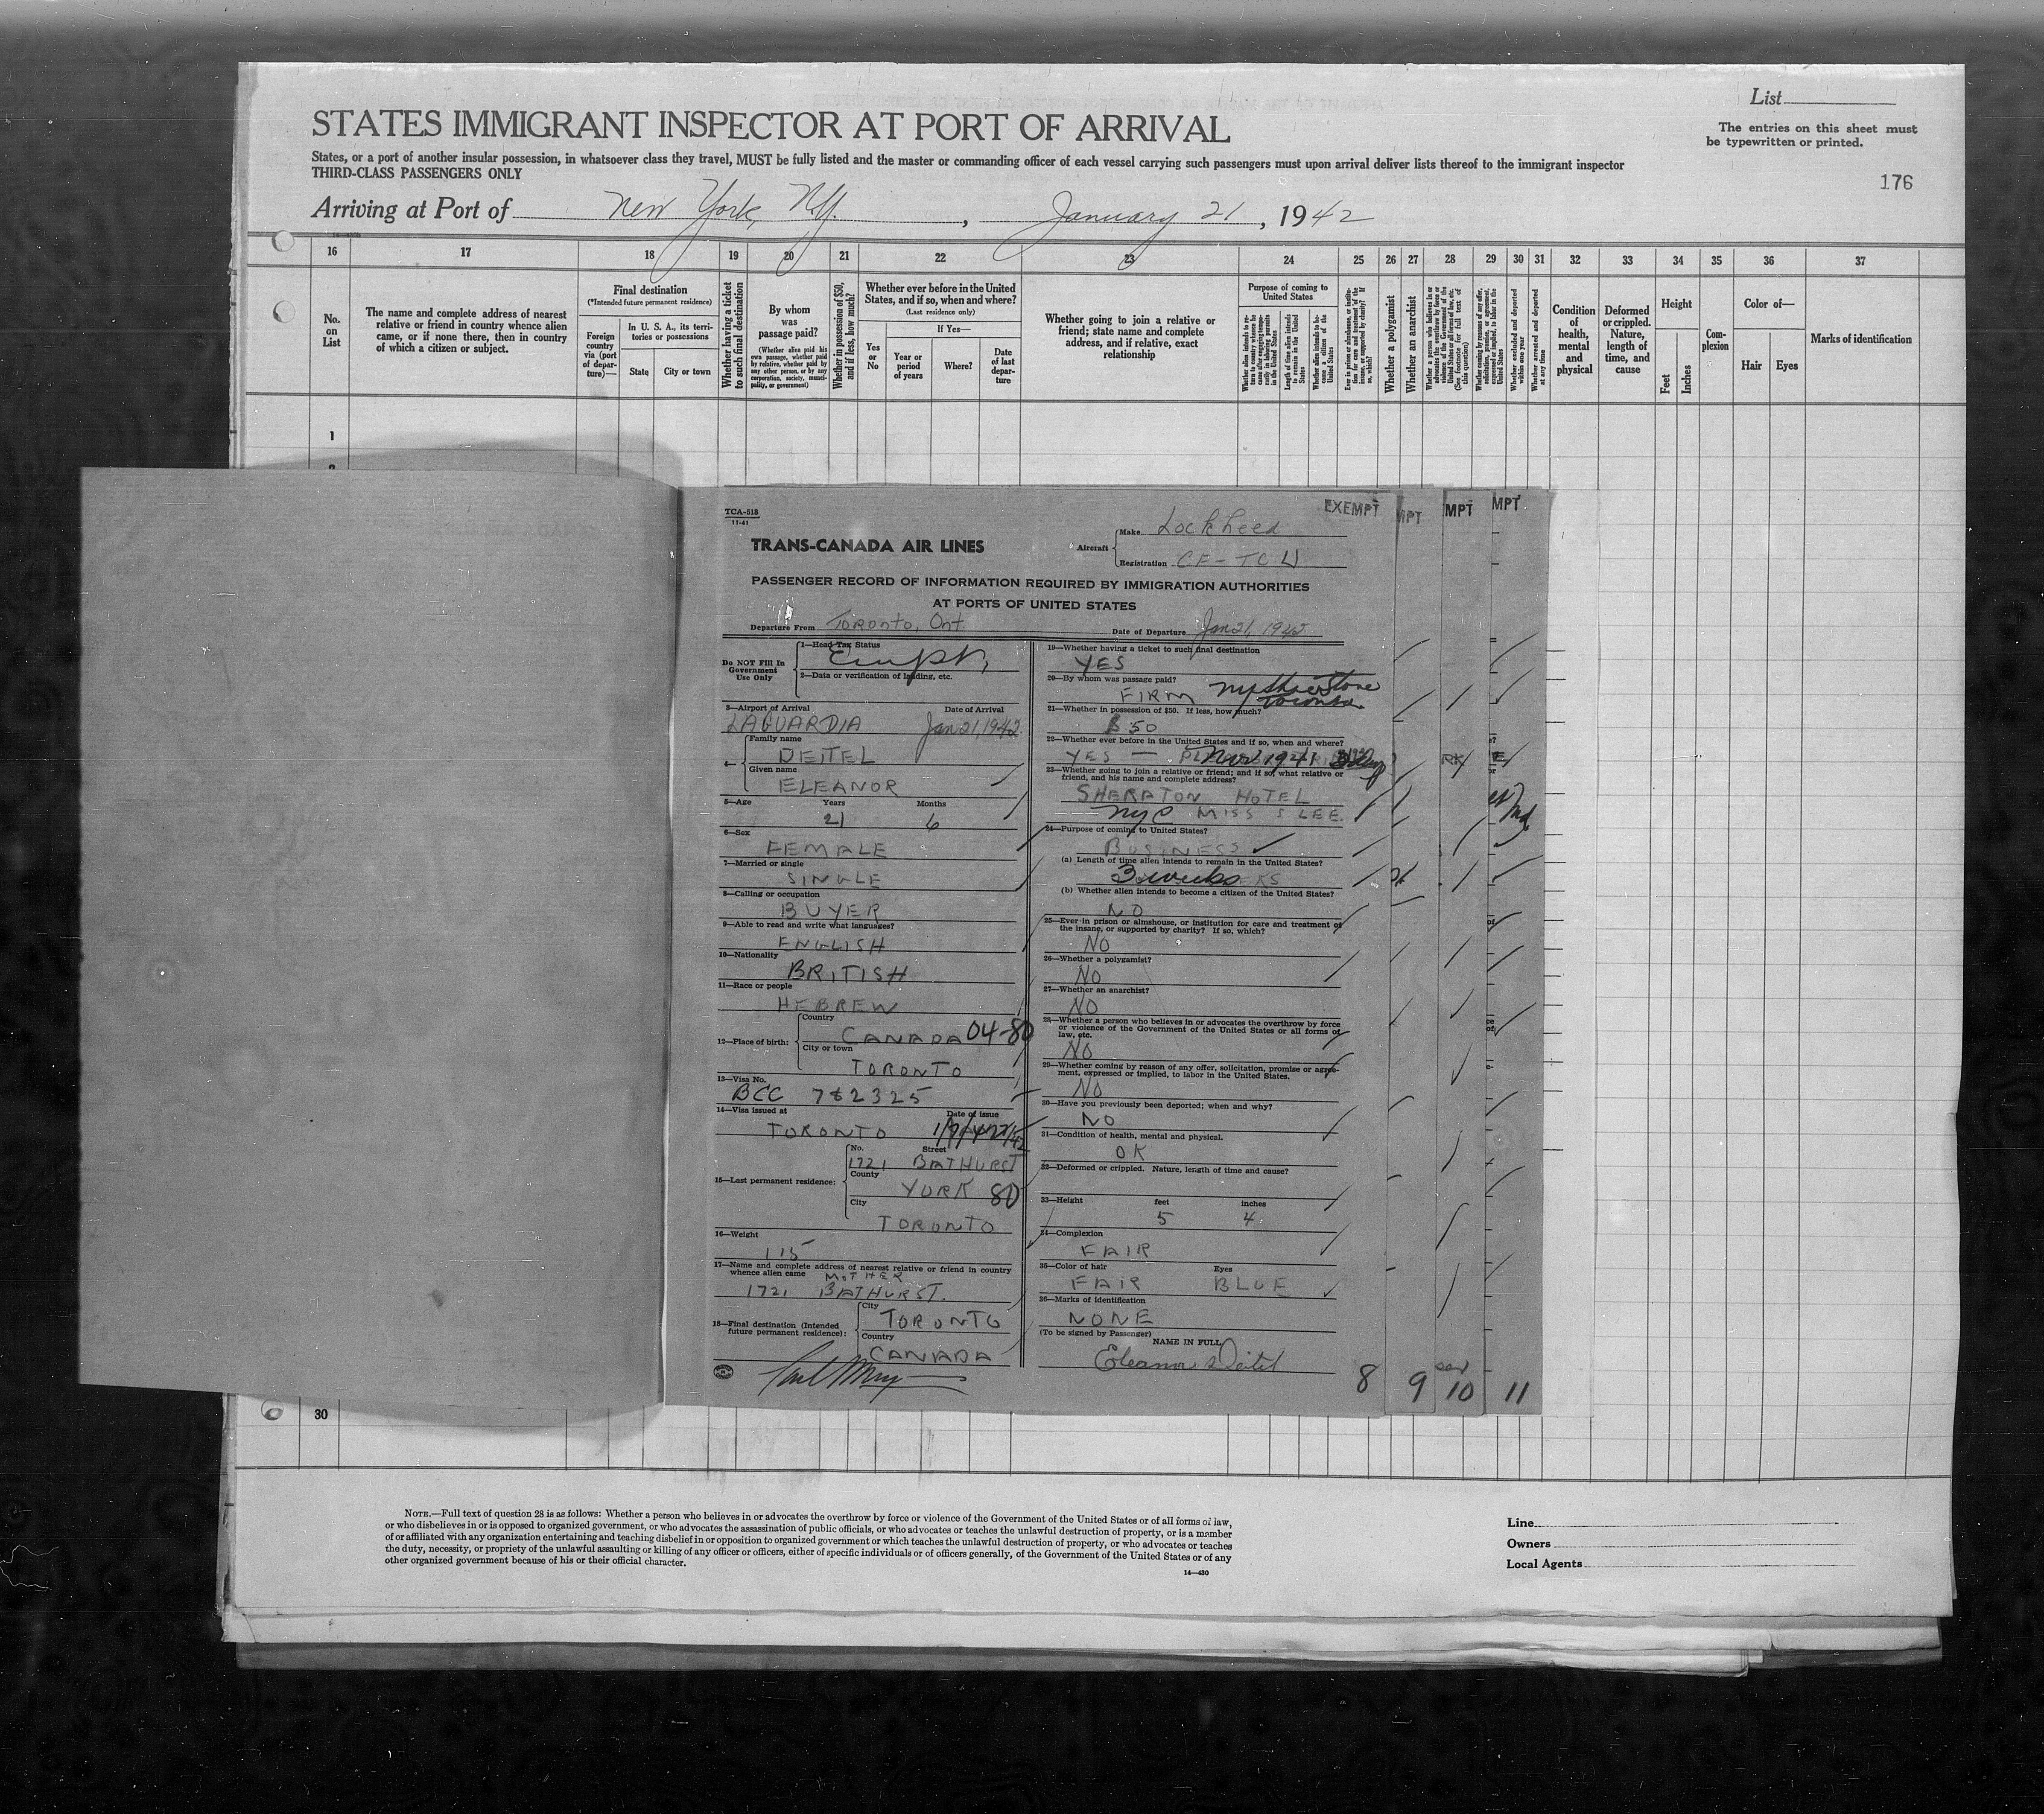 List
The entries on this sheet must
be typewritten or printed.
176
STATES IMMIGRANT INSPECTOR AT PORT OF ARRIVAL
States, or a port of another insular possession, in whatsoever class they travel, MUST be fully listed and the master or commanding officer of each vessel carrying such passengers must upon arrival deliver lists thereof to the immigrant inspector
THIRD-CLASS PASSENGERS ONLY
Arriving at Port of New York, N.Y. , January 21 , 1942
16 17 18 19 20 21 22 23 24 25 26 27 28 29 30 31 32 33 34 35 36 37
No. on List
The name and complete address of nearest
relative or friend in country whence alien
came, or if none there, then in country
of which a citizen or subject.
Final destination
(*Intended future permanent residence)
Foreign country via (port of departure)—
In U. S. A., its territories or possessions
State
City or town
Whether having a ticket to such final destination
By whom was passage paid?
(Whether alien paid his own passage, whether paid by relative, whether paid by any other person, or by any corporation, society, municipality, or government)
Whether in possession of $50, and if less, how much?
Whether ever before in the United
States, and if so, when and where?
(Last residence only)
Yes or No
If Yes—
Year or period of years
Where?
Date of last departure
Whether going to join a relative or
friend; state name and complete
address, and if relative, exact
relationship
Purpose of coming to
United States
Length of time alien intends to remain in the United States
Whether alien intends to become a citizen of the United States
Whether a polygamist
Whether an anarchist
Whether excluded and deported within one year
Whether arrested and deported at any time
Condition of health, mental and physical
Deformed or crippled. Nature, length of time, and cause
Height
Feet
Inches
Complexion
Color of—
Hair
Eyes
Marks of identification
1
TCA-518
11-41
EXEMPT
MPT
MPT
MPT
TRANS-CANADA AIR LINES
Aircraft
Make Lockheed
Registration CF-TCU
PASSENGER RECORD OF INFORMATION REQUIRED BY IMMIGRATION AUTHORITIES
AT PORTS OF UNITED STATES
Departure From Toronto, Ont.
Date of Departure Jan 21, 1942
Do NOT Fill In
Government
Use Only
1—Head Tax Status
2—Data or verification of landing, etc.
3—Airport of Arrival Date of Arrival
LAGUARDIA Jan 21, 1942
4—
Family name
DEITEL
Given name
ELEANOR
5—Age Years Months
21 6
6—Sex
FEMALE
7—Married or single
SINGLE
8—Calling or occupation
BUYER
9—Able to read and write what languages?
ENGLISH
10—Nationality
BRITISH
11—Race or people
HEBREW
12—Place of birth:
Country
CANADA 04-80
City or town
TORONTO
13—Visa No.
BCC 782325
14—Visa issued at Date of issue
TORONTO
15—Last permanent residence:
No. Street
1721 BATHURST
County
YORK 80
City
TORONTO
16—Weight
115
17—Name and complete address of nearest relative or friend in country
whence alien came MOTHER
1721 BATHURST.
18—Final destination (Intended
future permanent residence):
City
TORONTO
Country
CANADA
19—Whether having a ticket to such final destination
YES
20—By whom was passage paid?
FIRM
Toronto
21—Whether in possession of $50. If less, how much?
$50
22—Whether ever before in the United States and if so, when and where?
YES — Nov 1941
23—Whether going to join a relative or friend; and if so, what relative or
friend, and his name and complete address?
SHERATON HOTEL
NYC MISS S LEE.
24—Purpose of coming to United States?
BUSINESS
(a) Length of time alien intends to remain in the United States?
3 weeks
(b) Whether alien intends to become a citizen of the United States?
NO
25—Ever in prison or almshouse, or institution for care and treatment of
the insane, or supported by charity? If so, which?
NO
26—Whether a polygamist?
NO
27—Whether an anarchist?
NO
28—Whether a person who believes in or advocates the overthrow by force
or violence of the Government of the United States or all forms of
law, etc.
NO
29—Whether coming by reason of any offer, solicitation, promise or agree-
ment, expressed or implied, to labor in the United States.
NO
30—Have you previously been deported; when and why?
NO
31—Condition of health, mental and physical.
OK
32—Deformed or crippled. Nature, length of time and cause?
33—Height feet inches
5 4
34—Complexion
FAIR
35—Color of hair Eyes
FAIR BLUE
36—Marks of identification
NONE
(To be signed by Passenger)
NAME IN FULL
Eleanor Deitel
8 9 10 11
30
NOTE.—Full text of question 28 is as follows: Whether a person who believes in or advocates the overthrow by force or violence of the Government of the United States or of all forms of law,
or who disbelieves in or is opposed to organized government, or who advocates the assassination of public officials, or who advocates or teaches the unlawful destruction of property, or is a member
of or affiliated with any organization entertaining and teaching disbelief in or opposition to organized government or which teaches the unlawful destruction of property, or who advocates or teaches
the duty, necessity, or propriety of the unlawful assaulting or killing of any officer or officers, either of specific individuals or of officers generally, of the Government of the United States or of any
other organized government because of his or their official character.
14—430
Line
Owners
Local Agents